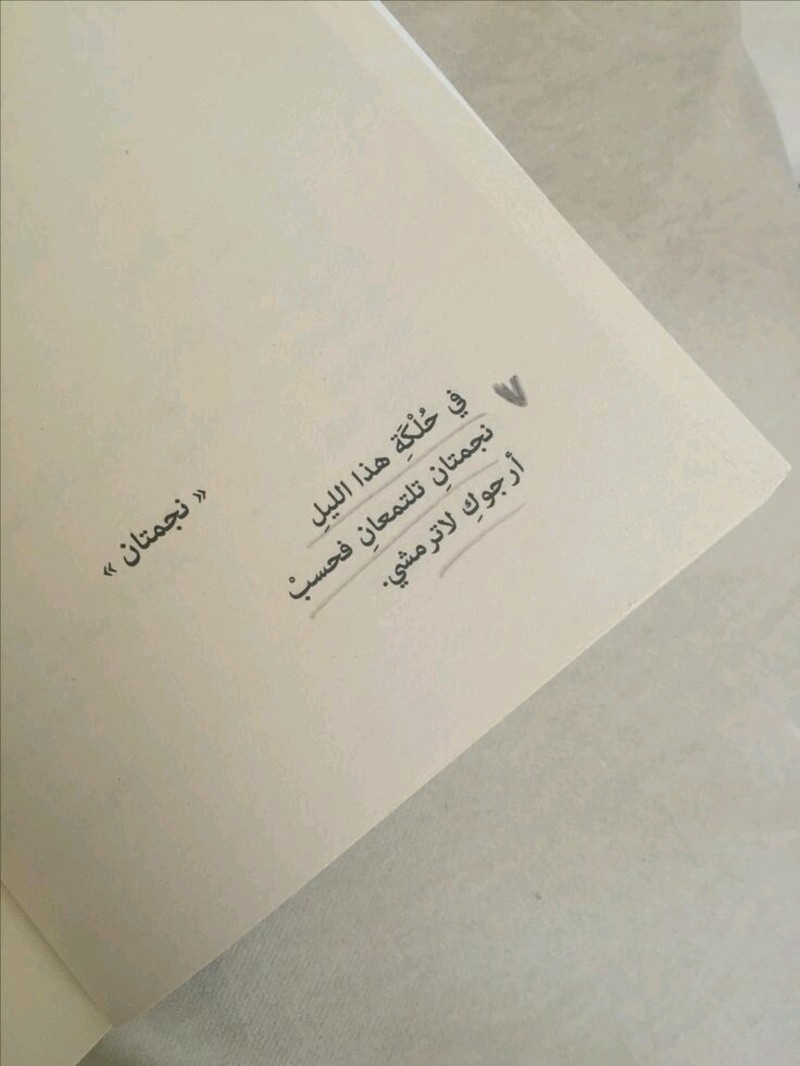 « نجمتان »
في حُلْكَةِ هذا الليلِ
نجمتانِ تلتمعانِ فحسبْ
أرجوكِ لاترمشي.